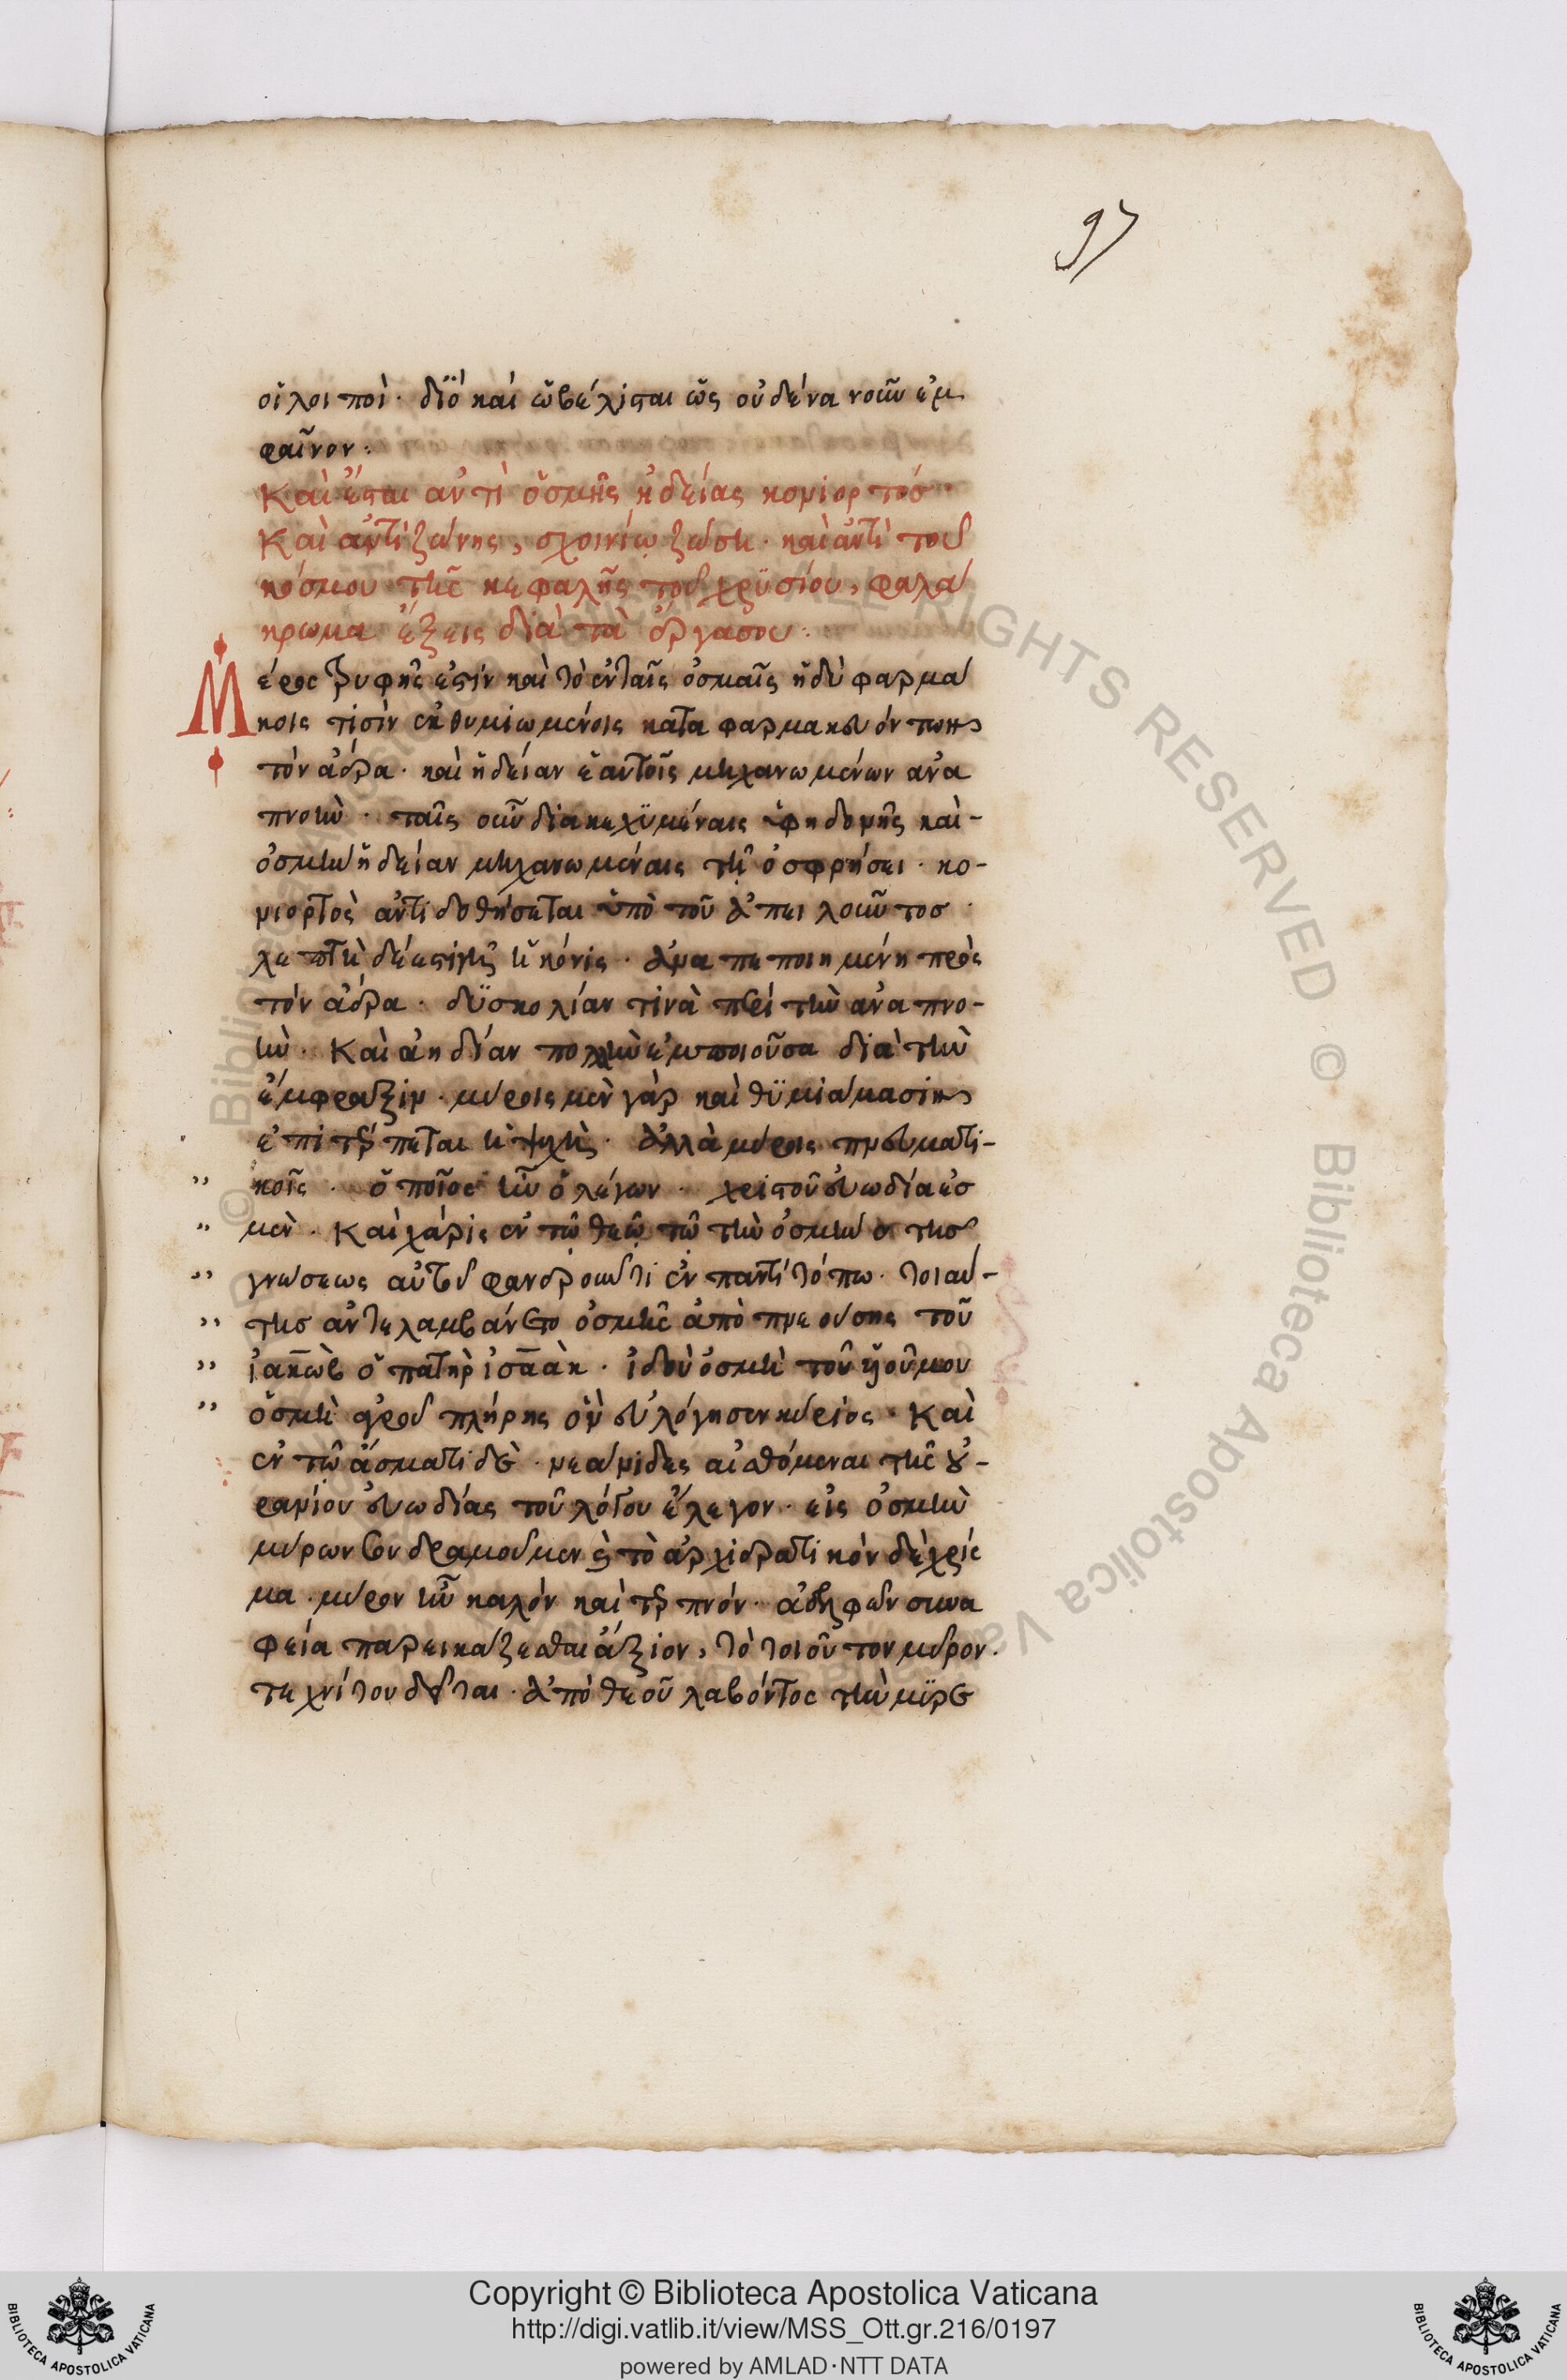 97
οἱ λοιποὶ · διὸ καὶ ὠβέλισται ὡς οὐδένα νοῦν ἐμ
φαῖνον :
Καὶ ἔσται ἀντὶ ὀσμῆς ἡδείας κονιορτός ··
Καὶ ἀντὶ ζώνης, σχοινίω ζώση · καὶ ἀντὶ τοῦ
κόσμου τῆς κεφαλῆς τοῦ χρϋσίου, φαλά
κρωμα ἕξεις διὰ τὰ ἔργα σου :
Μέρος τρυφῆς ἐστὶν καὶ τὸ ἐν ταῖς ὀσμαῖς ἡδὺ φαρμά
κοις τισὶν ἐκθυμιωμένοις καταφαρμακευόντων
τὸν ἀέρα · καὶ ἡδεῖαν ἑαυτοῖς μηχανωμένων ἀνα
πνοὴν · ταῖς οὖν διακεχϋμέναις ὑφ ἡδονῆς καὶ-
ὀσμὴν ἡδεῖαν μηχανωμέναις τῇ ὀσφρήσει · κο-
νιορτὸς ἀντιδοθήσεται ὑπὸ τοῦ ἀπειλοῦντος ·
λεπτὴ δέ ἐστιν ἡ κόνις · ἀναπεποιημένη πρὸς
τὸν ἀέρα · δϋσκολίαν τινὰ περὶ τὴν ἀναπνο-
ὴν · Καὶ ἀηδίαν πολλὴν ἐμποιοῦσα διὰ τὴν
ἔμφραξιν · μύροις μὲν γὰρ καὶ θϋμιάμασιν
ἐπιτέρπεται ἡ ψυχὴ · ἀλλὰ μύροις πνευματι-
κοῖς · ὁποῖος ἦν ὁ λέγων · χριστοῦ εὐωδία ἐσ
μὲν · Καὶ χάρις ἐν τῷ θεῷ τῷ τὴν ὀσμὴν τῆς
γνώσεως αὐτοῦ φανεροῦντι ἐν παντὶ τόπω · τοιαύ-
της ἀντελαμβάνετο ὀσμῆς ἀπὸ πνεούσης τοῦ
ἰακὼβ ὁ πατὴρ ἰσαὰκ · ἰδοὺ ὀσμὴ τοῦ υἱοῦ μου
ὀσμὴ ἀγροῦ πλήρης ὃν εὐλόγησεν κύριος · Καὶ
ἐν τῷ ἄσματι δὲ · νεάνιδες αἰσθόμεναι τῆς οὐ-
ρανίου εὐωδίας τοῦ λόγου ἔλεγον · εἰς ὀσμὴν
μύρων σου δραμοῦμεν καὶ τὸ ἀρχιερατικὸν δὲ χρίσ
μα · μύρον ἦν καλὸν καὶ τερπνόν · ἀδελφῶν συνα
φεία παρεικάζεσθαι ἄξιον, τὸ τοιοῦτον μύρον ·
τεχνίτου δεῖται · ἀπὸ θεοῦ λαβόντος τὴν μϋρε
Copyright © Biblioteca Apostolica Vaticana
http://digi.vatlib.it/view/MSS_Ott.gr.216/0197
powered by AMLAD·NTT DATA